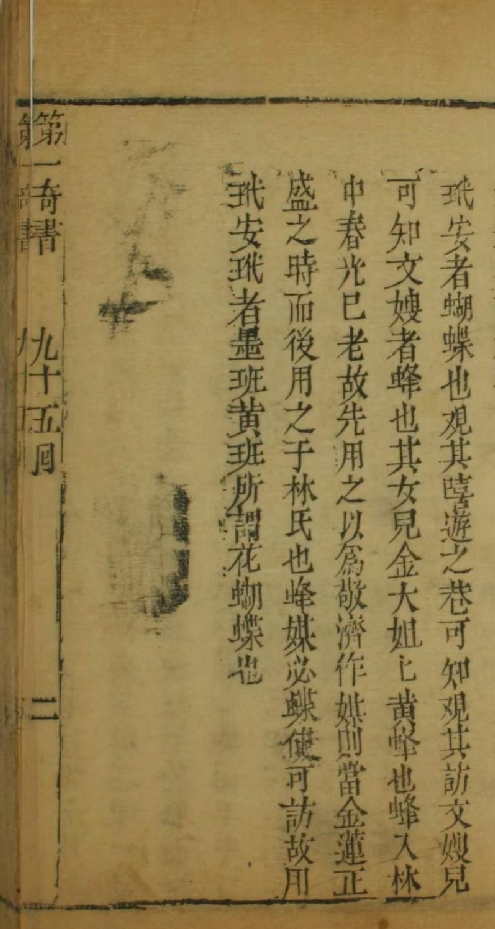 玳安者蝴蝶也观其嬉遊之巷可知观其訪文嫂兒
可知文嫂者蜂也其女兒金大姐匕黄蜂也蜂入林
中春光已老故先用之以爲敬濟作媒則當金蓮正
盛之時而後用之于林氏也蜂媒必蝶使可訪故用
玳安玳者墨班黄班所謂花蝴蝶也
第一奇書 九十五囘 二